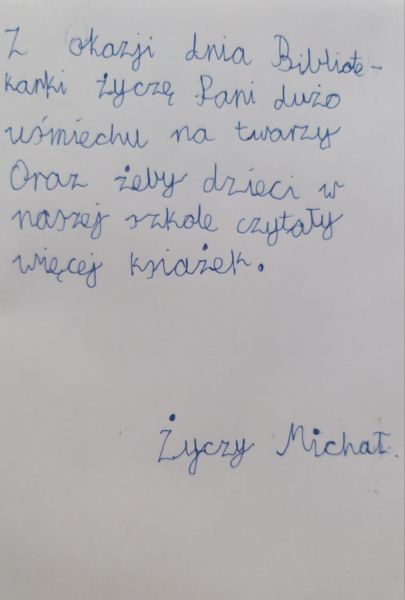 Z okazji dnia Bibliote-
karki życzę Pani dużo
uśmiechu na twarzy
Oraz żeby dzieci w
naszej szkole czytały
więcej książek.
Życzy Michał.